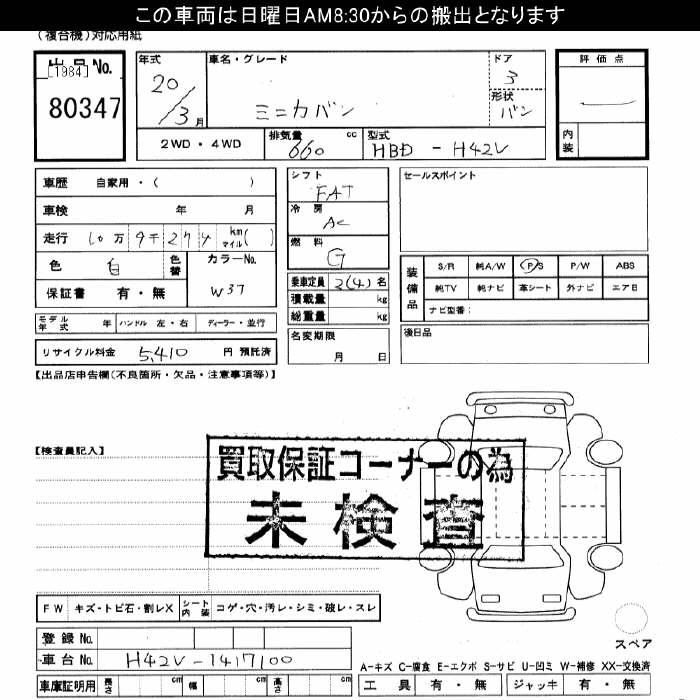 この車両は日曜日AM8:30からの搬出となります
(複合機)対応用紙
出品No.
[1984]
80347
年式
20/3月
車名・グレード
ミニカバン
ドア
3
形状
バン
評価点
内装
2WD・4WD
排気量
660
cc
型式
HBD - H42V
車歴 自家用・( )
車検 年 月
走行 10万 9千 274 km マイル( )
色 白 色替
カラーNo.
W37
保証書 有・無
シフト
FAT
冷房
AC
燃料
G
乗車定員 2(4) 名
積載量 kg
総重量 kg
名変期限
月 日
セールスポイント
装備品
S/R 純A/W P/S P/W ABS
純TV 純ナビ 革シート 外ナビ エアB
ナビ型番:
後日品
モデル年式 年 ハンドル 左・右 ディーラー・並行
リサイクル料金 5,410 円 預託済
【出品店申告欄(不良箇所・欠品・注意事項等)】
【検査員記入】
買取保証コーナーの為
未検査
FW キズ・トビ石・割レX シート内装 コゲ・穴・汚レ・シミ・破レ・スレ
登録No.
車台No. H42V-1417100
車庫証明用 長さ cm 幅 cm 高さ cm
スペア
A-キズ C-腐食 E-エクボ S-サビ U-凹ミ W-補修 XX-交換済
工具 有・無 ジャッキ 有・無